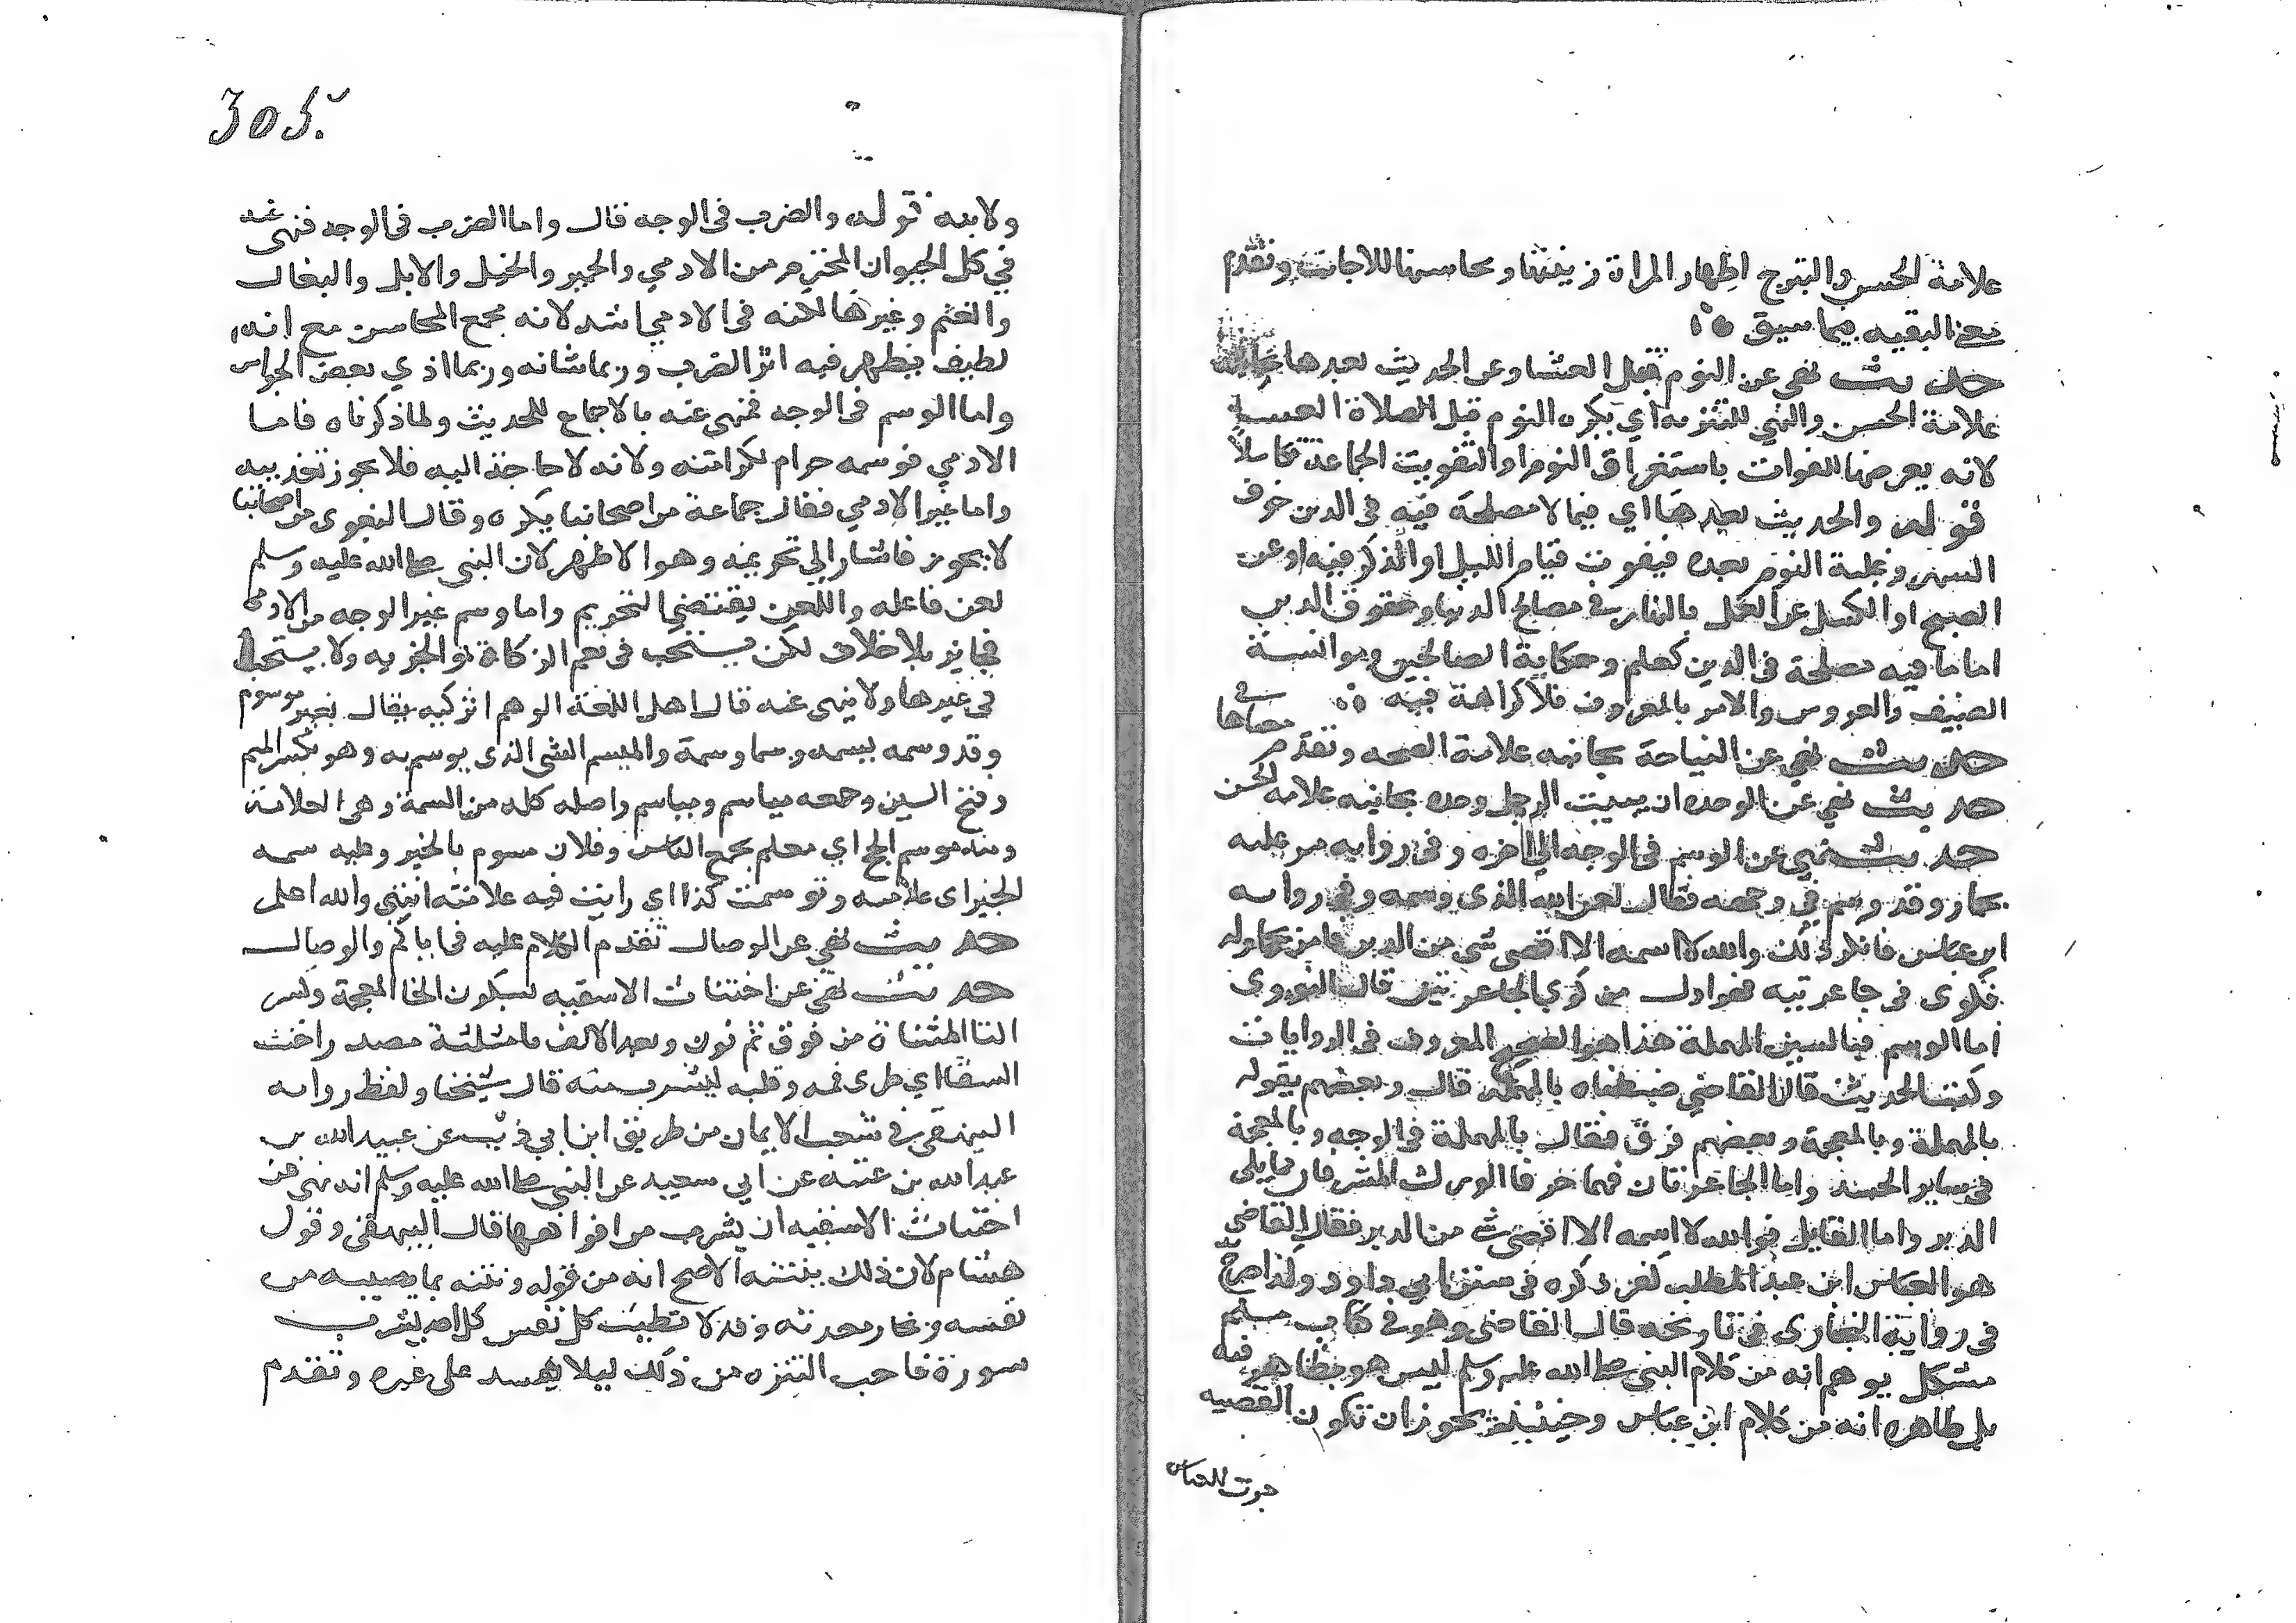 علامة الحسن والتبرج اظهار المراة زينتها ومحاسنها للاجانب وتقدم
البقيه فيما سبق
حديث نهى عن النوم قبل العشا وعن الحديث بعدها بجانبه
علامة الحسن والنهي للتنزيه اي يكره النوم قبل الصلاة العشا
لانه يعرضها للفوات باستغراق النوم او لتفويت الجماعة تكاسلا
قوله والحديث بعدها اي فيما لا مصلحة فيه في الدين خوف
السهر وغلبة النوم بعده فيفوت قيام الليل او الذكر فيه او عن
الصبح او الكسل عن العمل بالنهار في مصالح الدنيا وحقوق الدين
اما ما فيه مصلحة في الدين كعلم وحكاية الصالحين وموانسة
الضيف والعروس والامر بالمعروف فلا كراهة فيه
حديث نهي عن النياحة بجانبه علامة الصحه وتقدم في معناها
حديث نهي عن الوحده ان يبيت الرجل وحده بجانبه علامة الحسن
حديث نهي عن الوسم في الوجه الي اخره وفي روايه مر عليه
بحمار وقد وسم في وجهه فقال لعن الله الذي وسمه وفي رواىه
ابن عباس فانكر ذلك والله لا اسمه الا اقصى شي من الوجه فامر بحمار له
فكوى في جاعرتيه فهو اول من كوي الجاعرتين قال النووى
اما الوسم فبالسين المهملة هذا هو الصحيح المعروف في الروايات
وكتب الحديث قال القاضي ضبطناه بالمهملة قال وبعضهم يقوله
بالمهملة وبالمعجمة وبعضهم فرق فقال بالمهملة في الوجه وبالمعجمة
في ساير الجسد واما الجاعرتان فهما حرفا الورك المشرفان مما يلي
الدبر واما القايل فوالله لا اسمه الا اقصى شي من الدبر فقال القاضي
هو العباس ابن عبد المطلب كذا ذكره في سنن ابي داود وكذا صرح
في رواية البخارى في تاريخه قال القاضي وهو في كتاب مسلم
مشكل يوهم انه من كلام النبي صلى الله عليه وسلم ليس هو بظاهر فيه
بل ظاهره انه من كلام ابن عباس وحينيذ يجوز ان تكون القضيه
جرت للعباس
305
ولابنه قوله والضرب في الوجه قال واما الضرب في الوجه فنهى عنه
في كل الحيوان المحترم من الادمي والحمير والخيل والابل والبغال
والغنم وغيرها لكنه في الادمي اشد لانه مجمع المحاسن مع انه
لطيف فيظهر فيه اثر الضرب وربما شانه وربما اذي بعض الحواس
واما الوسم في الوجه فمنهى عنه بالاجماع للحديث ولما ذكرناه فاما
الادمي فوسمه حرام لكرامته ولانه لا حاجة اليه فلا يجوز تعذيبه
واما غير الادمي فقال جماعة من اصحابنا يكره وقال البغوى من اصحابنا
لا يجوز فاشار الي تحريمه وهو الاظهر لان النبى صلى الله عليه وسلم
لعن فاعله واللعن يقتضي التحريم واما وسم غير الوجه من الادمي
فجايز بلا خلاف لكن يستحب في نعم الزكاة والجزيه ولا يستحب
في غيرها ولا ينهى عنه قال اهل اللغة الوسم اثر كيه يقال بعير موسوم
وقد وسمه يسمه وسما وسمة والميسم الشى الذى يوسم به وهو بكسر الميم
وفتح السين وجمعه مياسم ومواسم واصله كله من السمة وهى العلامة
ومنه موسم الحج اي معلم يجمع الناس وفلان موسوم بالخير وعليه سمه
الخير اى علامته وتوسمت كذا اي رايت فيه علامته انتهى والله اعلم
حديث نهي عن الوصال تقدم الكلام عليه في اياكم والوصال
حديث نهى عن اختناث الاسقيه بسكون الخا المعجمة وكسر
التا المثناة من فوق ثم نون وبعد الالف ثا مثلثة مصدر اختنث
السقا اي طرى فمه وقلبه ليشرب منه قال شيخنا ولفظ رواىه
البيهقي في شعب الايمان من طريق ابن ابي ذيب عن عبيد الله بن
عبد الله بن عتبه عن ابي سعيد عن النبى صلى الله عليه وسلم انه نهى عن
اختناث الاسقيه ان يشرب من افواهها قال البيهقى وقول
هشام لان ذلك ينتنه الاصح انه من قوله ونتنه بما يصيبه من
نفسه وبخار معدته وقد لا تطيب كل نفس كل احد بشرب
سورة فاحب التنزه من ذلك ليلا يفسد على غيره وتقدم